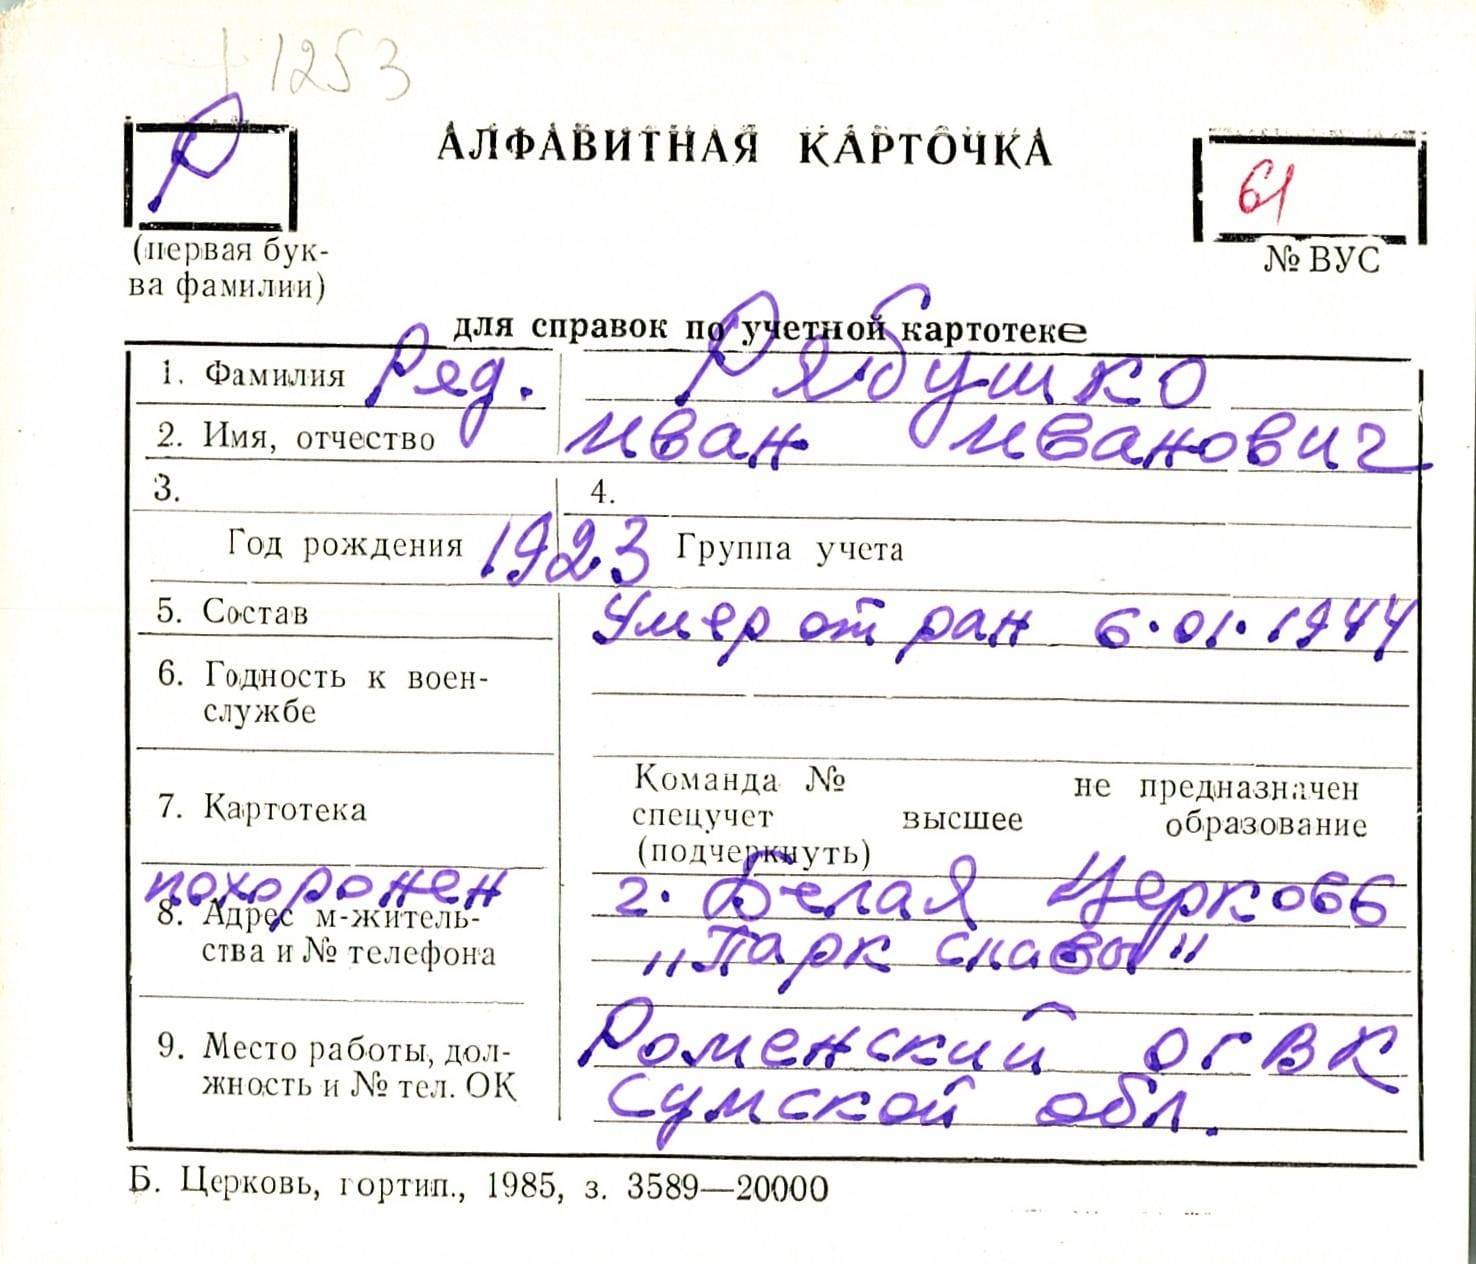 +1253
Р
АЛФАВИТНАЯ КАРТОЧКА
61
(первая бук-
ва фамилии)
№ ВУС
для справок по учетной картотеке
1. Фамилия Ряд. Рябушко
2. Имя, отчество Иван Иванович
3. 4.
Год рождения 1923 Группа учета
5. Состав Умер от ран 6.01.1944
6. Годность к воен-
службе
7. Картотека
Команда № не предназначен
спецучет высшее образование
(подчеркнуть)
похоронен г. Белая Церковь
8. Адрес м-житель-
ства и № телефона „Парк славы"
9. Место работы, дол-
жность и № тел. ОК
Роменский ОГВК
Сумской обл.
Б. Церковь, гортип., 1985, з. 3589—20000